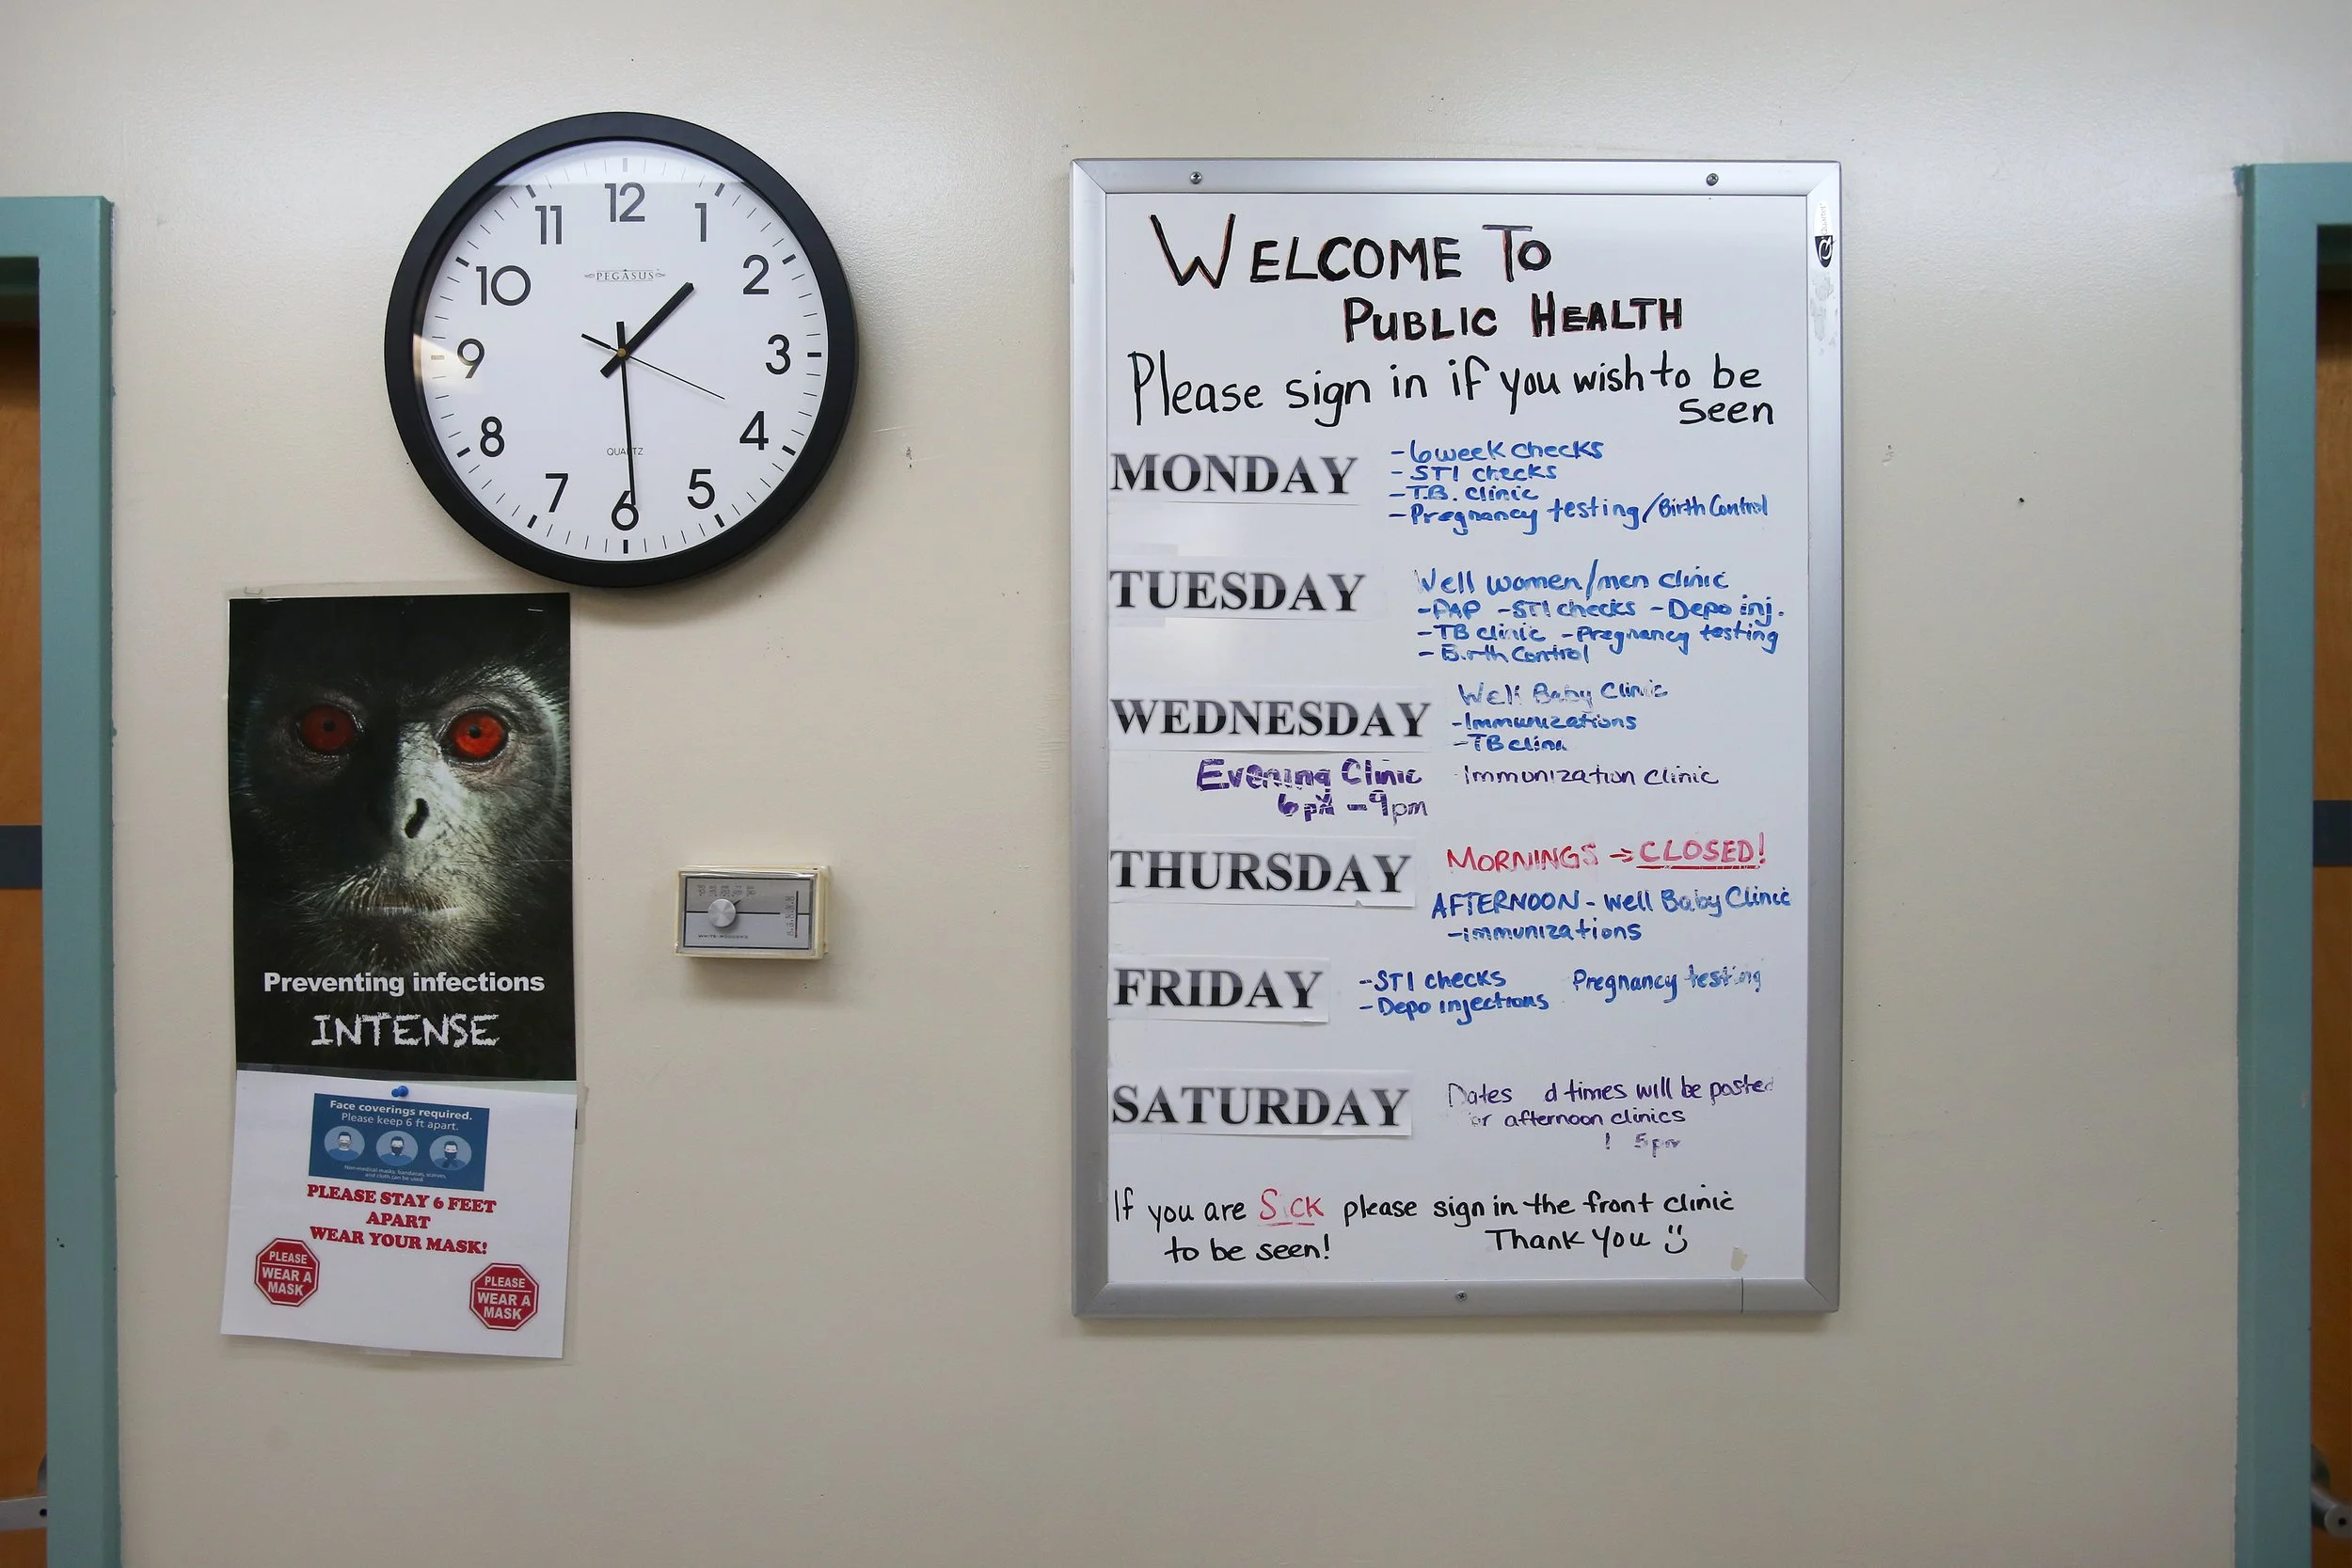 12
1
2
3
4
5
6
7
8
9
10
11
PEGASUS
QUARTZ
Preventing infections
INTENSE
Face coverings required.
Please keep 6 ft apart.
Non-medical masks, bandanas, scarves,
and cloth can be used
PLEASE STAY 6 FEET
APART
WEAR YOUR MASK!
PLEASE
WEAR A
MASK
PLEASE
WEAR A
MASK
WHITE-RODGERS
WELCOME TO
PUBLIC HEALTH
Please sign in if you wish to be
seen
MONDAY
-6 week checks
-STI checks
-T.B. clinic
-Pregnancy testing/Birth Control
TUESDAY
Well women/men clinic
-PAP -STI checks -Depo inj.
-TB clinic -Pregnancy testing
-Birth Control
WEDNESDAY
Well Baby Clinic
-Immunizations
-TB clinic
Evening Clinic
6pm -9pm
Immunization Clinic
THURSDAY
MORNINGS → CLOSED!
AFTERNOON - Well Baby Clinic
-immunizations
FRIDAY
-STI checks Pregnancy testing
-Depo injections
SATURDAY
Dates d times will be posted
or afternoon clinics
! 5pm
If you are SiCK please sign in the front clinic
to be seen! Thank You